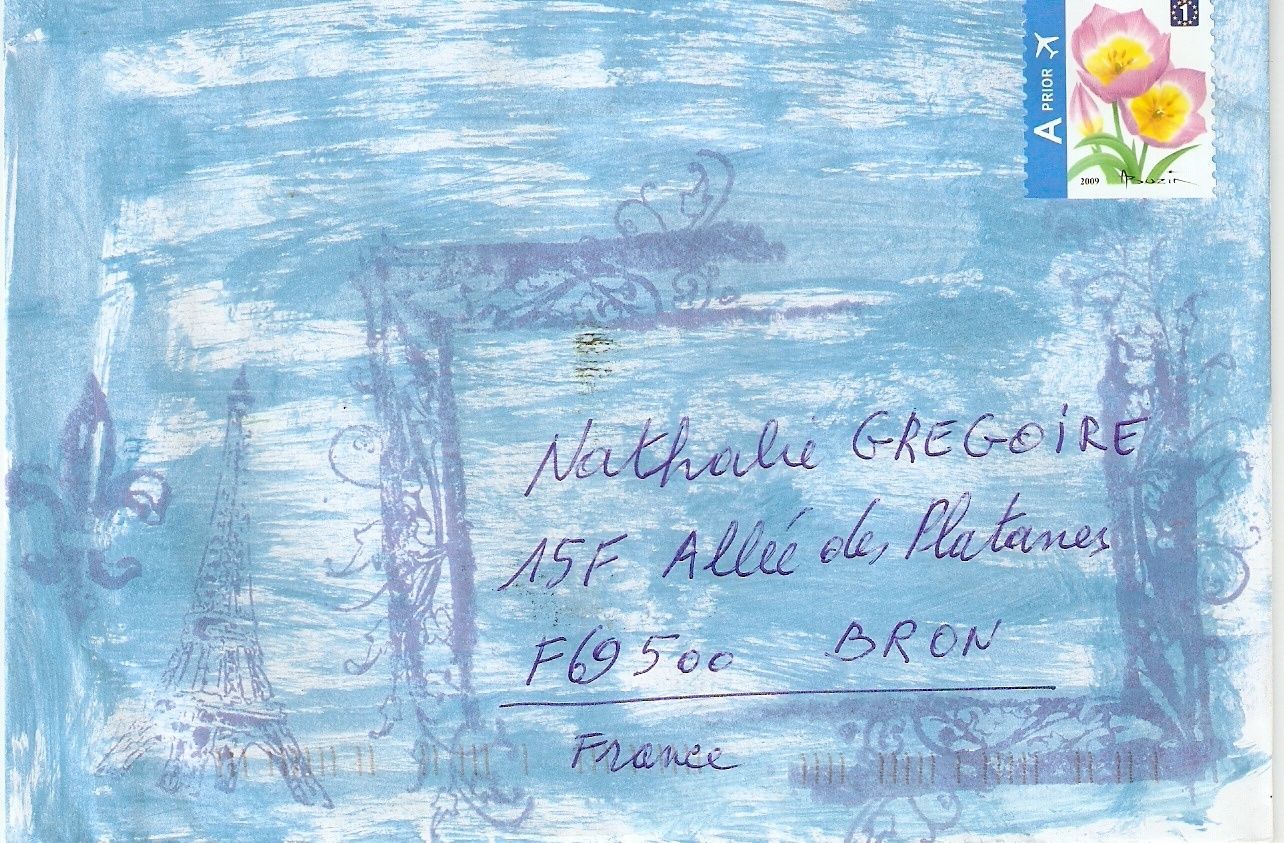 1
A PRIOR
2009
Nathalie GREGOIRE
15F Allée des Platanes
F69500 BRON
France